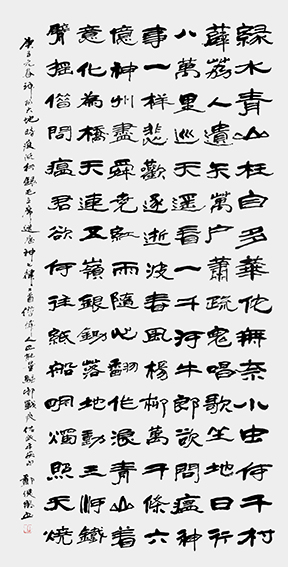 緑水青山枉自多華佗無奈小虫何千村
薜荔人遺矢萬户蕭疏鬼唱歌坐地日行
八萬里巡天遥看一千河牛郎欲問瘟神
事一樣悲歡逐逝波春風楊柳萬千條六
億神州盡舜堯紅雨隨心翻作浪青山着
意化為橋天連五嶺銀鋤落地動三河鐵
臂摇借問瘟君欲何往紙船明燭照天燒
庚子大地時疫録毛主席送瘟神七律二首